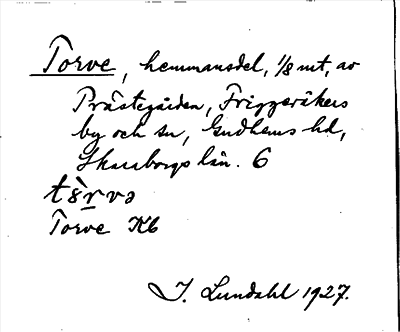 Torve, hemmansdel, 1/8 mt, av
Prästgården, Friggeråkers
by och sn, Gudhems hd,
Skaraborgs län. 6
tò̤rvə
Torve Kb
I. Lundahl 1927.